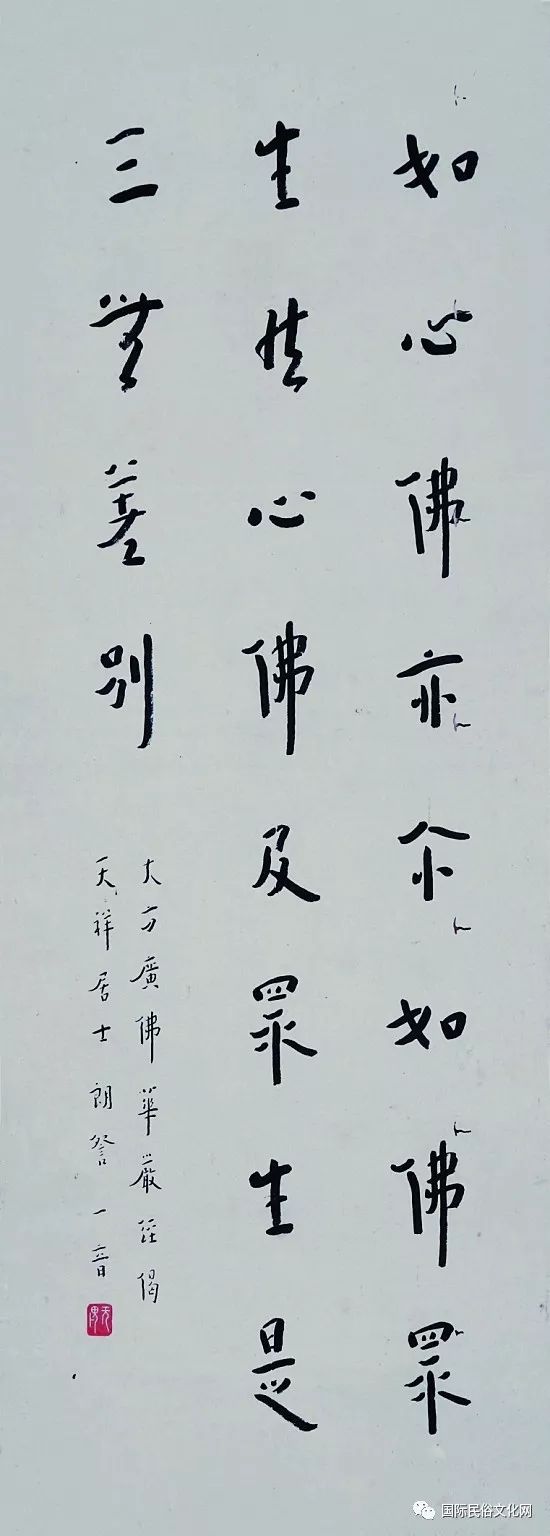 如心佛亦尒如佛眾
生然心佛及眾生是
三無差別
大方廣佛華嚴經偈
天祥居士朗詧 一音
国际民俗文化网